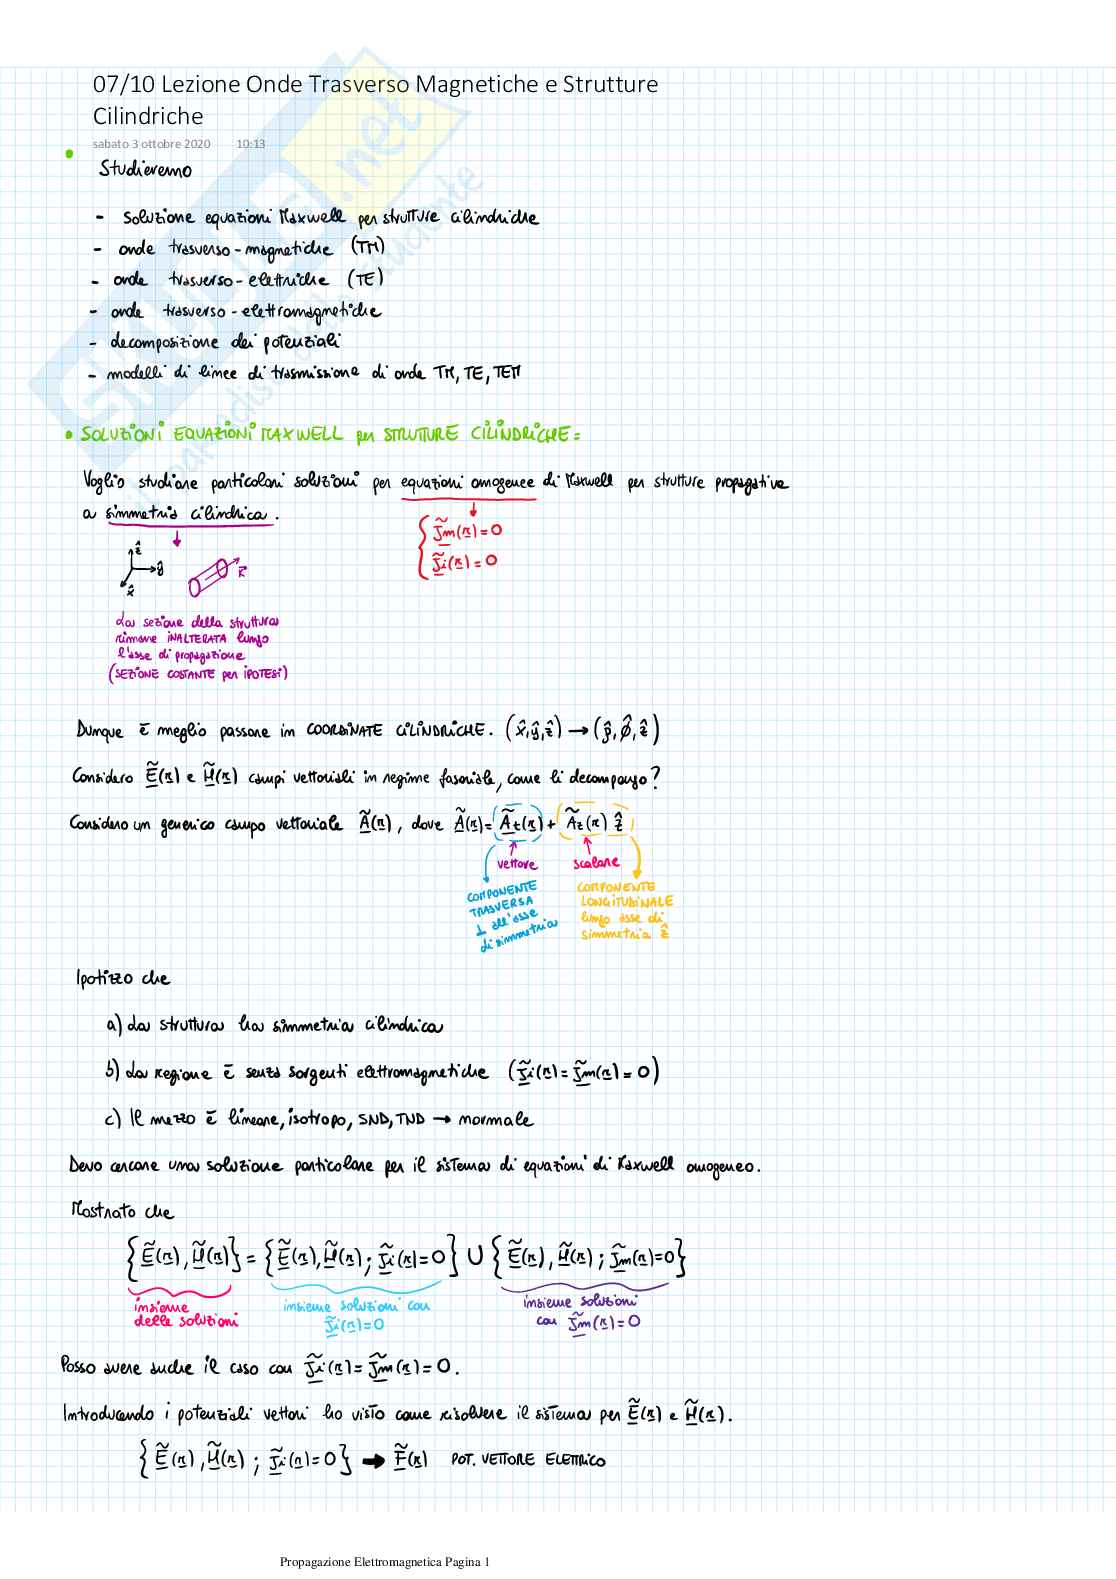 07/10 Lezione Onde Trasverso Magnetiche e Strutture
Cilindriche
sabato 3 ottobre 2020 10:13
Studieremo
- soluzione equazioni Maxwell per strutture cilindriche
- onde trasverso-magnetiche (TM)
- onde trasverso-elettriche (TE)
- onde trasverso-elettromagnetiche
- decomposizione dei potenziali
- modelli di linee di trasmissione di onde TM, TE, TEM
• SOLUZIONI EQUAZIONI MAXWELL per STRUTTURE CILINDRICHE:
Voglio studiare particolari soluzioni per equazioni omogenee di Maxwell per strutture propagative
a simmetria cilindrica.
J̃m(r)=0
J̃i(r)=0
ẑ
ŷ
x̂
k̂
La sezione della struttura
rimane INALTERATA lungo
l'asse di propagazione
(SEZIONE COSTANTE per IPOTESI)
Dunque è meglio passare in COORDINATE CILINDRICHE. (x̂,ŷ,ẑ) → (ρ̂,φ̂,ẑ)
Considero Ẽ(r) e H̃(r) campi vettoriali in regime fasoriale, come li decompongo?
Considero un generico campo vettoriale Ã(r), dove Ã(r)= Ãt(r) + Ãz(r) ẑ
vettore scalare
COMPONENTE
TRASVERSA
⊥ all'asse
di simmetria
COMPONENTE
LONGITUDINALE
lungo asse di
simmetria ẑ
Ipotizzo che
a) La struttura ha simmetria cilindrica
b) La regione è senza sorgenti elettromagnetiche (J̃i(r)=J̃m(r)=0)
c) Il mezzo è lineare, isotropo, SND, TND → normale
Devo cercare una soluzione particolare per il sistema di equazioni di Maxwell omogeneo.
Mostrato che
{Ẽ(r),H̃(r)} = {Ẽ(r),H̃(r); J̃i(r)=0} ∪ {Ẽ(r),H̃(r); J̃m(r)=0}
insieme
delle soluzioni
insieme soluzioni con
J̃i(r)=0
insieme soluzioni
con J̃m(r)=0
Posso avere anche il caso con J̃i(r)=J̃m(r)=0.
Introducendo i potenziali vettori ho visto come risolvere il sistema per Ẽ(r) e H̃(r).
{Ẽ(r),H̃(r); J̃i(r)=0} → F̃(r) POT. VETTORE ELETTRICO
Propagazione Elettromagnetica Pagina 1